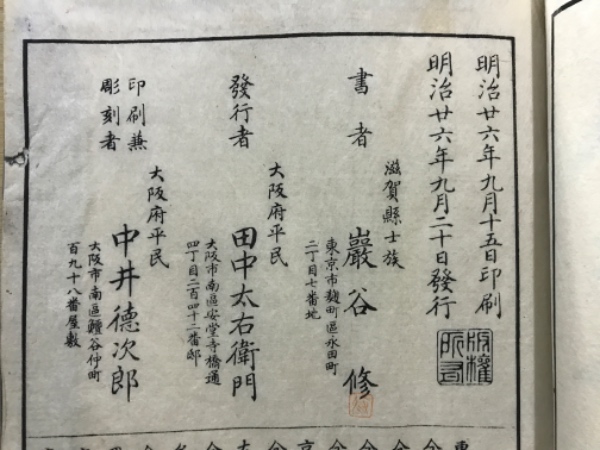 明治廿六年九月十五日印刷
明治廿六年九月二十日發行
版權所有
書者
滋賀縣士族
巖谷修
東京市麹町區永田町
二丁目七番地
發行者
大阪府平民
田中太右衛門
大阪市南區安堂寺橋通
四丁目二百四十二番邸
印刷兼
彫刻者
大阪府平民
中井德次郎
大阪市南區鰻谷仲町
百九十八番屋敷